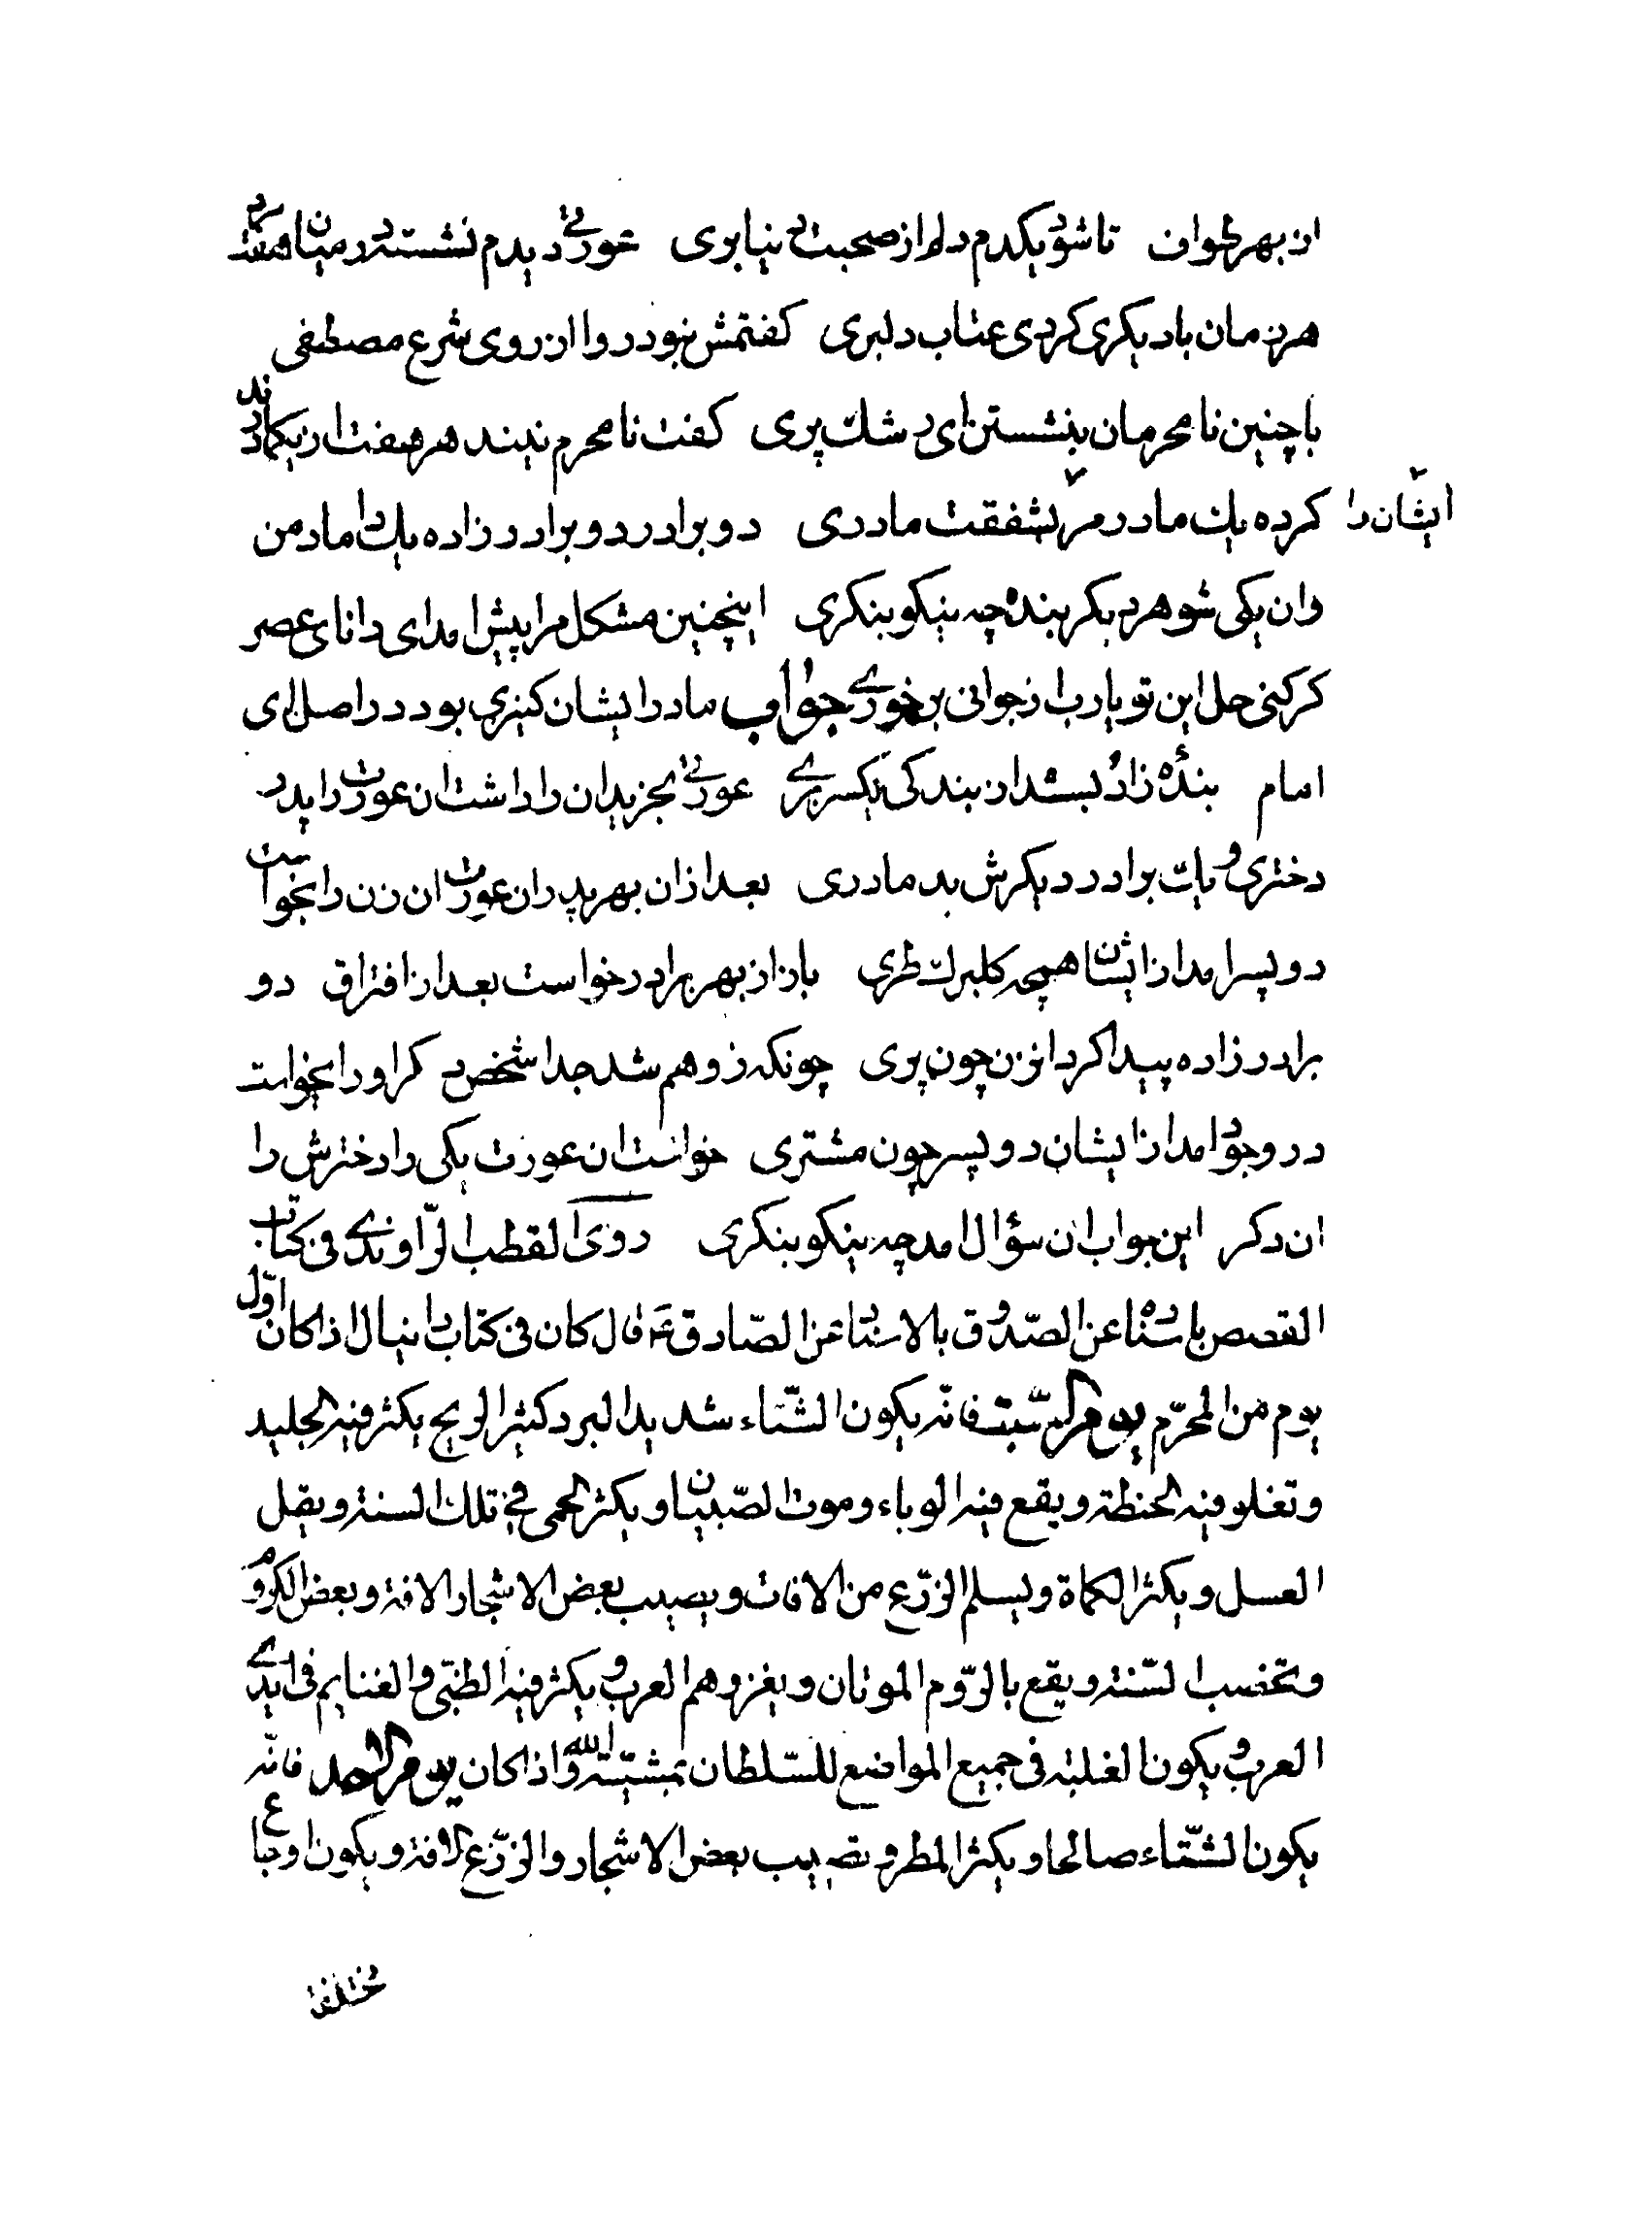 از بهر طواف تا شود یکدم دلم از صحبت دنیا بری عورتی دیدم نشسته در میان هفت مرد
هر زمان با دیکری کردی عتاب دلبری کفتمش نبود روا از روی شرع مصطفی
با چنین نامحرمان بنشستن ای رشک پری کفت نامحرم نیند هر هفت از یک مادرند
ایشان را کرده یک مادر مر بشفقت مادری دو برادر دو برادر زاده یک داماد من
وان یکی شوهر دیکر بنده چه نیکو بنکری اینچنین مشکل مرا پیش امد ای دانای عصر
کر کنی حل این تو یارب از جوانی بر خوری جواب مادر ایشان کنیزی بود در اصل ای
امام بنده زاد بستد از بندکی یکسر بری عورتی بخرید ان را داشت ان عورت را پدر
دختری و یک برادر دیکرش بد مادری بعد ازان بهر پدر ان عورت ان زن را بخواست
دو پسر امد از ایشان همچو کلبرک طری باز از بهر برادر خواست بعد از افتراق دو
برادر زاده پیدا کرد از زن چون پری چونکه زو هم شد جدا شخص دکر او را بخواست
در وجود امد از ایشان دو پسر چون مشتری خواست ان عورت یکی را دخترش را
ان دکر این جواب ان سؤال امد چه نیکو بنکری روی القطب الرّاوندی فی کتاب
القصص باسناده عن الصّدوق بالاسناد عن الصّادق ع قال کان فی کتاب دانیال اذا کان اوّل
یوم من المحرّم یوم السّبت فانّه یکون الشّتاء شدید البرد کثیر الریح یکثر فیه الجلید
و تغلو فیه الحنطة و یقع فیه الوباء و موت الصّبیان و یکثر الحمی فی تلک السنة و یقل
العسل و یکثر الکماة و یسلم الزّرع من الافات و یصیب بعض الاشجار الافة و بعض الکروم
و تخصب السّنة و یقع بالرّوم الموتان و یغزوهم العرب و یکثر فیه السّبی و الغنایم فی ایدی
العرب و یکون الغلبة فی جمیع المواضع للسّلطان بمشیّة الله و اذا کان یوم الاحد فانّه
یکون الشّتاء صالحا و یکثر المطر و تصیب بعض الاشجار و الزّرع الافة و یکون اوجاع
مختلفة